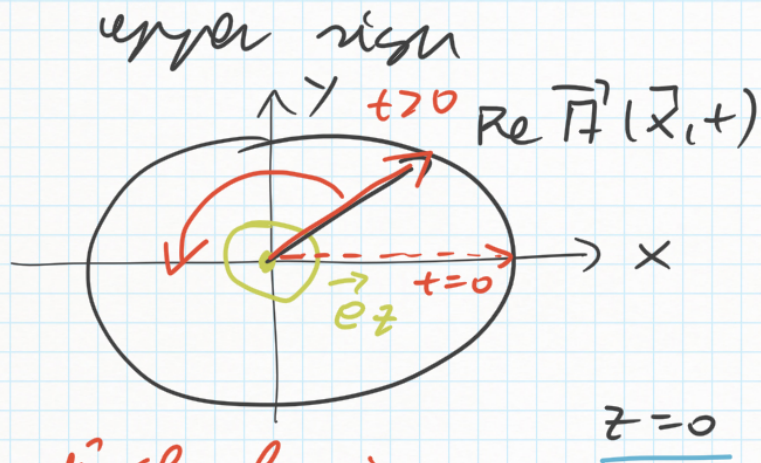 upper sign
y t>0
Re A⃗ (x⃗,t)
x
t=0
e⃗z
z=0